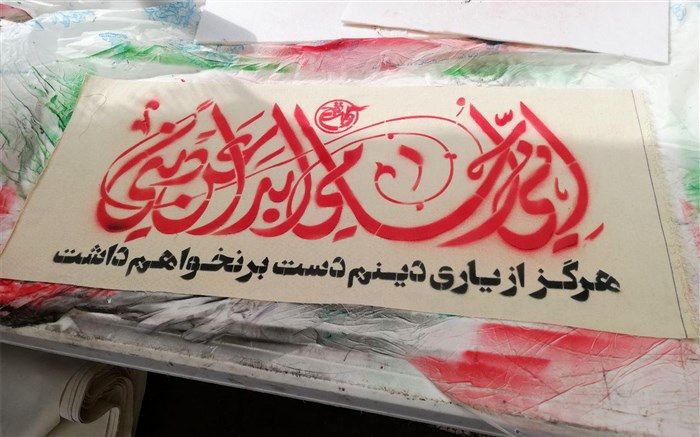 إني أحامي أبدا عن ديني
هرگز از یاری دینم دست برنخواهم داشت